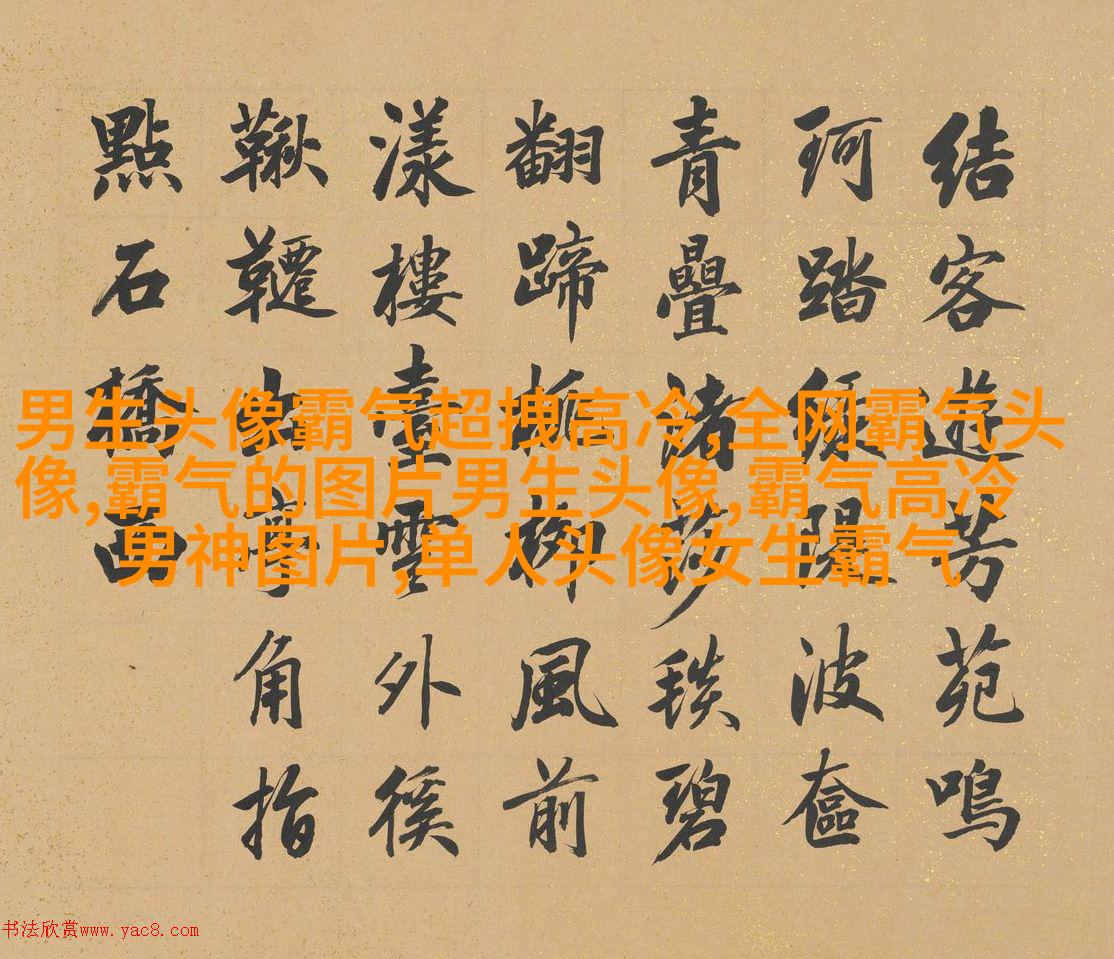 男生头像霸气超拽高冷,全网霸气头
像,霸气的图片男生头像,霸气高冷
男神图片,单人头像女生霸气
結客遊芳苑鳴
珂踏波奩
青疊渚莎毯碧
翻蹄柳風前
漾樓臺雲外徯
鞦韆出亭角指
點石橋西
书法欣赏www.yac8.com